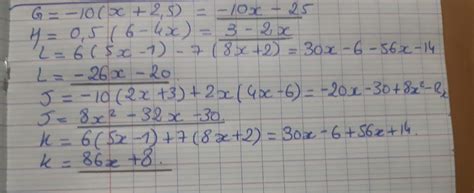 G = -10(x + 2,5) = -10x - 25
H = 0,5 (6 - 4x) = 3 - 2x
L = 6(5x - 1) - 7(8x + 2) = 30x - 6 - 56x - 14
L = -26x - 20
J = -10(2x + 3) + 2x(4x - 6) = -20x - 30 + 8x² -
J = 8x² - 32x - 30
K = 6(5x - 1) + 7(8x + 2) = 30x - 6 + 56x + 14.
K = 86x + 8.